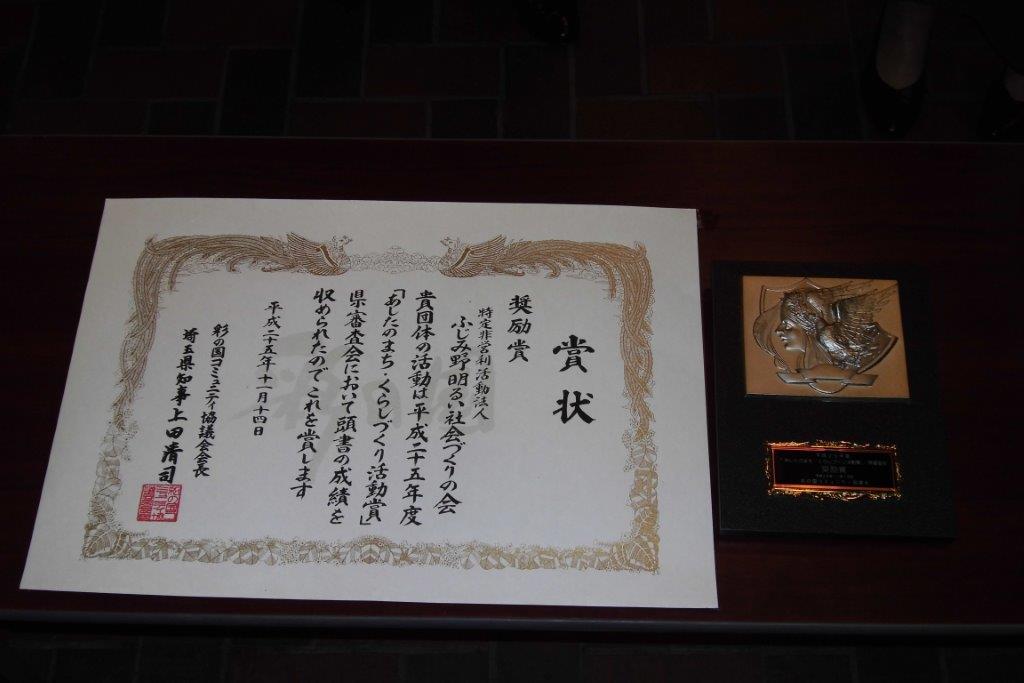 賞状
奨励賞
特定非営利活動法人
ふじみ野明るい社会づくりの会
貴団体の活動は平成二十五年度
「あしたのまち・くらしづくり活動賞」
県審査会において頭書の成績を
収められたのでこれを賞します
平成二十五年十一月十四日
彩の国コミュニティ協議会会長
埼玉県知事上田清司
奨励賞